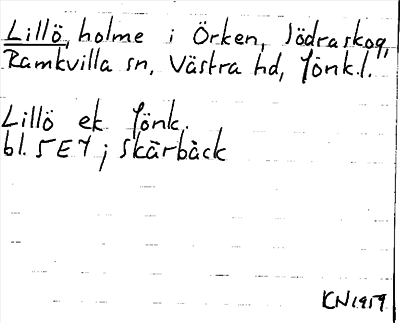 Lillö, holme i Örken, Södraskog,
Ramkvilla sn, Västra hd, Jönk.l.
Lillö ek Jönk.
bl. 5E7 ; Skärbäck
KN 1959